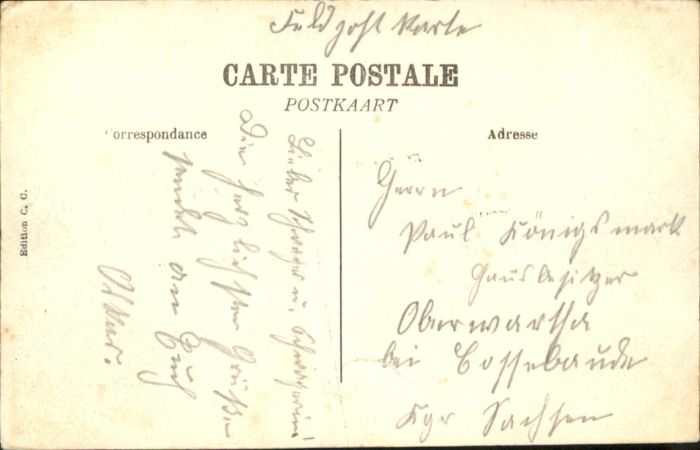 Feldpost Karte
CARTE POSTALE
POSTKAART
Correspondance
Adresse
Edition C. C.
Lieber Schwager u. Schwägerin!
Die herzlichsten Grüße
sendet an Euch
Oskar.
Herrn
Paul Königsmark
Hausbesitzer
Oberwartha
bei Cossebaude
Kgr Sachsen